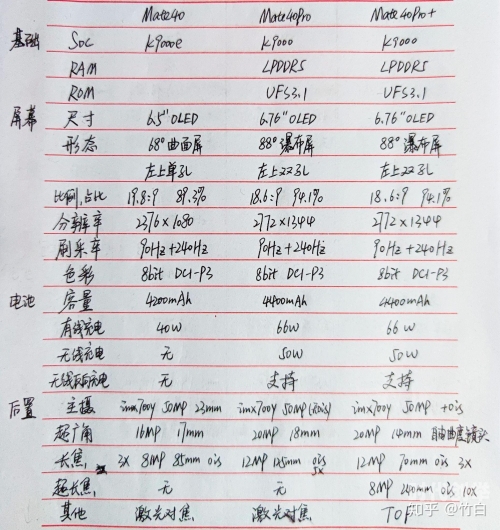 Mate40 Mate40Pro Mate40Pro+
基础 SoC K9000e K9000 K9000
RAM LPDDR5 LPDDR5
ROM UFS3.1 UFS3.1
屏幕 尺寸 6.5"OLED 6.76"OLED 6.76"OLED
形态 68°曲面屏 88°瀑布屏 88°瀑布屏
左上单孔 左上双孔 左上双孔
比例,占比 19.8:9 89.3% 18.6:9 94.1% 18.6:9 94.1%
分辨率 2376×1080 2772×1344 2772×1344
刷新率 90Hz+240Hz 90Hz+240Hz 90Hz+240Hz
色彩 8bit DCI-P3 8bit DCI-P3 8bit DCI-P3
电池 容量 4200mAh 4400mAh 4400mAh
有线充电 40W 66W 66W
无线充电 无 50W 50W
无线反向充电 无 支持 支持
后置 主摄 imx700y 50MP 23mm imx700y 50MP imx700y 50MP +ois
超广角 16MP 17mm 20MP 18mm 20MP 14mm 自由曲度镜头
长焦 3X 8MP 85mm ois 12MP 125mm ois 5X 12MP 70mm ois 3X
超长焦 无 无 8MP 240mm ois 10X
其他 激光对焦 激光对焦 TOF
知乎 @竹白